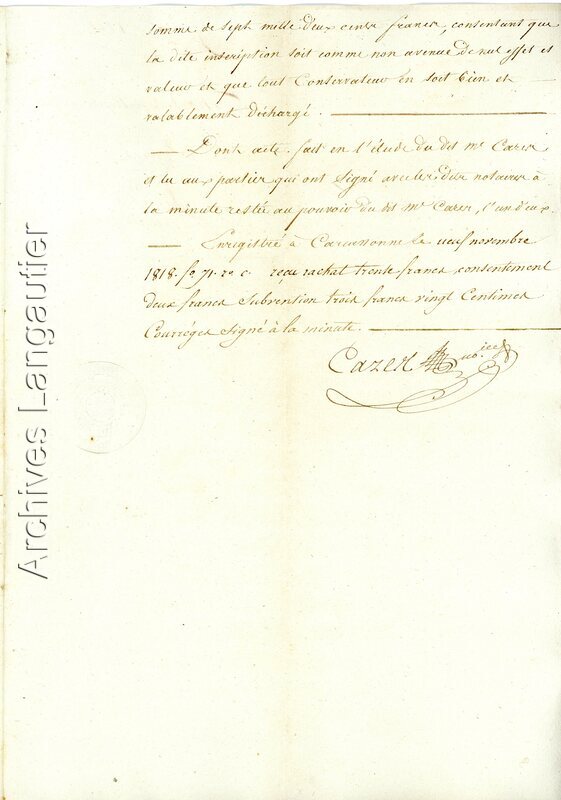 somme de sept mille deux cents francs, consentant que
la dite inscription soit comme non avenue de nul effet et
valeur et que tout Conservateur en soit bien et
valablement déchargé.
Dont acte. fait en l'étude du dit Me Cazes
et lu aux parties qui ont signé avec les dits notaires à
la minute restée au pouvoir du dit Me Cazes, l'un d'eux.
Enregistré à Carcassonne le neuf novembre
1818. fo 71. ro c. reçu rachat trente francs consentement
deux francs Subvention trois francs vingt Centimes
Courrèges signé à la minute.
Cazes
Archives Langautier